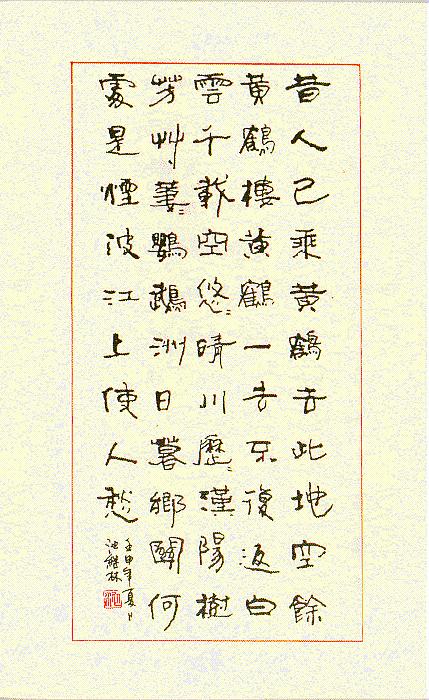 昔人已乘黃鶴去此地空餘
黃鶴樓黃鶴一去不復返白
雲千載空悠〻晴川歷〻漢陽樹
芳艸萋〻鸚鵡洲日暮鄉關何
處是煙波江上使人愁
壬申年夏日